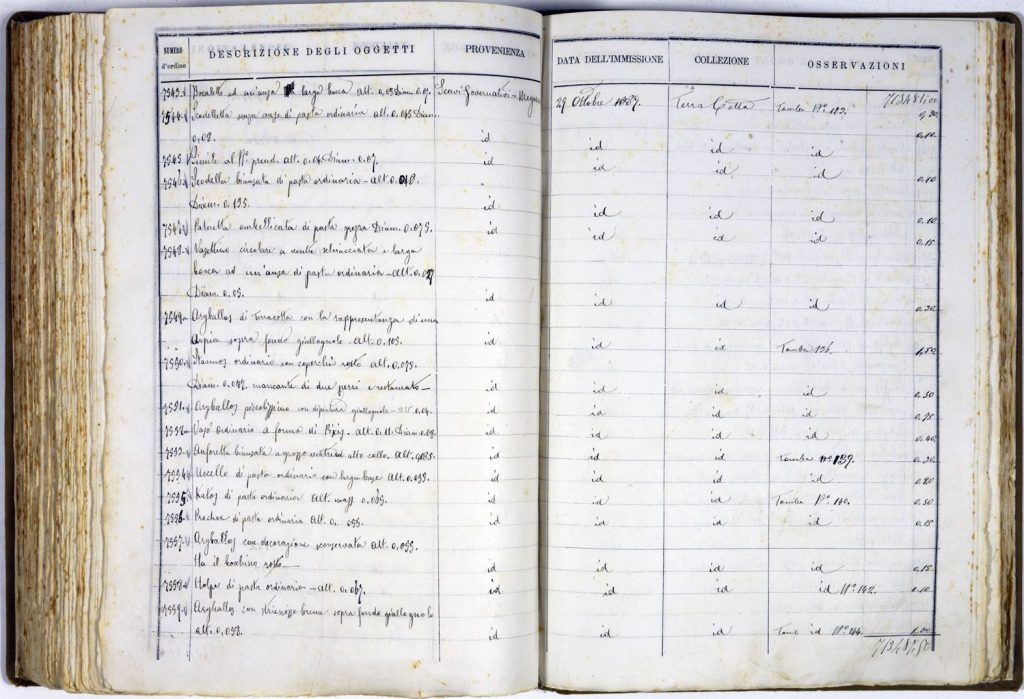 NUMERO d'ordine DESCRIZIONE DEGLI OGGETTI PROVENIENZA DATA DELL'IMMISSIONE COLLEZIONE OSSERVAZIONI
713481,00
7543 Bocaletto ad un'ansa larga bocca alt. 0,05 Diam. 0.07. Scavi Governativi - 29 Ottobre 1887. Terra Cotta Tomba Nº 132.
7544 Scodelletta senza anse di pasta ordinaria alt. 0.045 Diam.
0,09. id id id id 0,10
7545 Simile al Nº preced. alt. 0.04. Diam. 0.07. id id id id
7546 Scodella biansata di pasta ordinaria - alt. 0.048. 0,10
Diam. 0.135. id id id id 0,10
7547 Pateretta ombellicata di pasta grezza Diam. 0.075. id id id id 0,15
7548 Vasettino circolare a ventre schiacciato e larga
bocca ad un'ansa di pasta ordinaria - alt. 0.027
Diam. 0.05. id id id id 0,20
7549 Aryballos di terracotta con la rappresentanza di una
Arpia sopra fondo giallognolo alt. 0.105. id id id Tomba 136. 1,50
7550 Stamnos ordinario con coperchio rotto alt. 0.075.
Diam. 0.049. mancante di due pezzi e restaurato - id id id id 0,50
7551 Aryballos piccolissimo con dipintura giallognola - alt. 0.04. id id id id 0,25
7552 Vaso ordinario a forma di Pixis. alt. 0.11. Diam. 0.09. id id id id 0,40
7553 Anforetta biansata a grosso ventre ed alto collo. Alt. 0,085. id id id Tomba Nº 139. 0,20
7554 Uccello di pasta ordinario con lunga base alt. 0.055. id id id id 0,20
7555 Kalos di pasta ordinaria alt. mass. 0.065. id id id Tomba Nº 140. 0,50
7556 Prochoe di pasta ordinaria alt. 0.055. id id id id 0,15
7557 Aryballos con decorazione sconservata alt. 0.055.
Ha il bocchino rotto - id id id id 0,15
7558 Holpe di pasta ordinario - alt. 0.067. id id id id Nº 142. 0.10
7559 Aryballos con strisce brune sopra fondo giallognolo
alt. 0.058. id id id Tomb id Nº 144. 1,00
713487,50